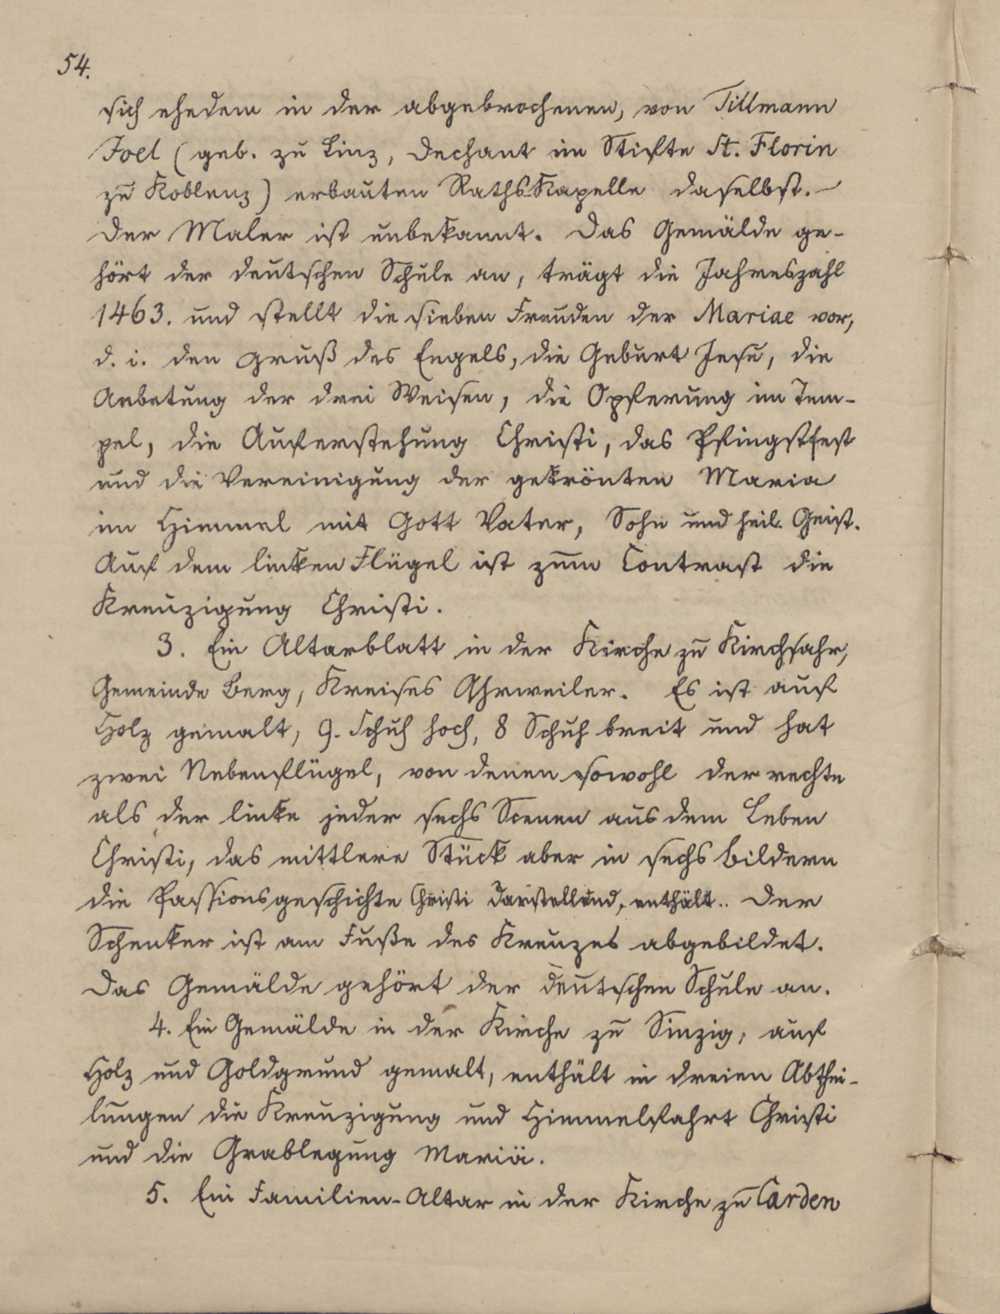 54.
sich ehedem in der abgebrochenen, von Tillmann
Joel (geb. zu Linz, Dechant im Stifte St. Florin
zu Koblenz) erbauten RathsKapelle daselbst. –
Der Maler ist unbekannt. Das Gemälde ge-
hört der deutschen Schule an, trägt die Jahreszahl
1463. und stellt die sieben Freuden der Mariae vor,
d. i. den Gruß des Engels, die Geburt Jesu, die
Anbetung der drei Weisen, die Opferung im Tem-
pel, die Auferstehung Christi, das Pfingstfest
und die Vereinigung der gekrönten Maria
im Himmel mit Gott Vater, Sohn und heil. Geist.
Auf dem linken Flügel ist zum Contrast die
Kreuzigung Christi.
3. Ein Altarblatt in der Kirche zu Kirchsahr,
Gemeinde Berg, Kreises Ahrweiler. Es ist auf
Holz gemalt, 9. Schuh hoch, 8 Schuh breit und hat
zwei Nebenflügel, von denen sowohl der rechte
als der linke jeder sechs Scenen aus dem Leben
Christi, das mittlere Stück aber in sechs Bildern
die Passionsgeschichte Christi darstellend, enthält.. Der
Schenker ist am Fuße des Kreuzes abgebildet.
Das Gemälde gehört der deutschen Schule an.
4. Ein Gemälde in der Kirche zu Sinzig, auf
Holz und Goldgrund gemalt, enthält in dreien Abthei-
lungen die Kreuzigung und Himmelfahrt Christi
und die Grablegung Mariä.
5. Ein Familien-Altar in der Kirche zu Carden